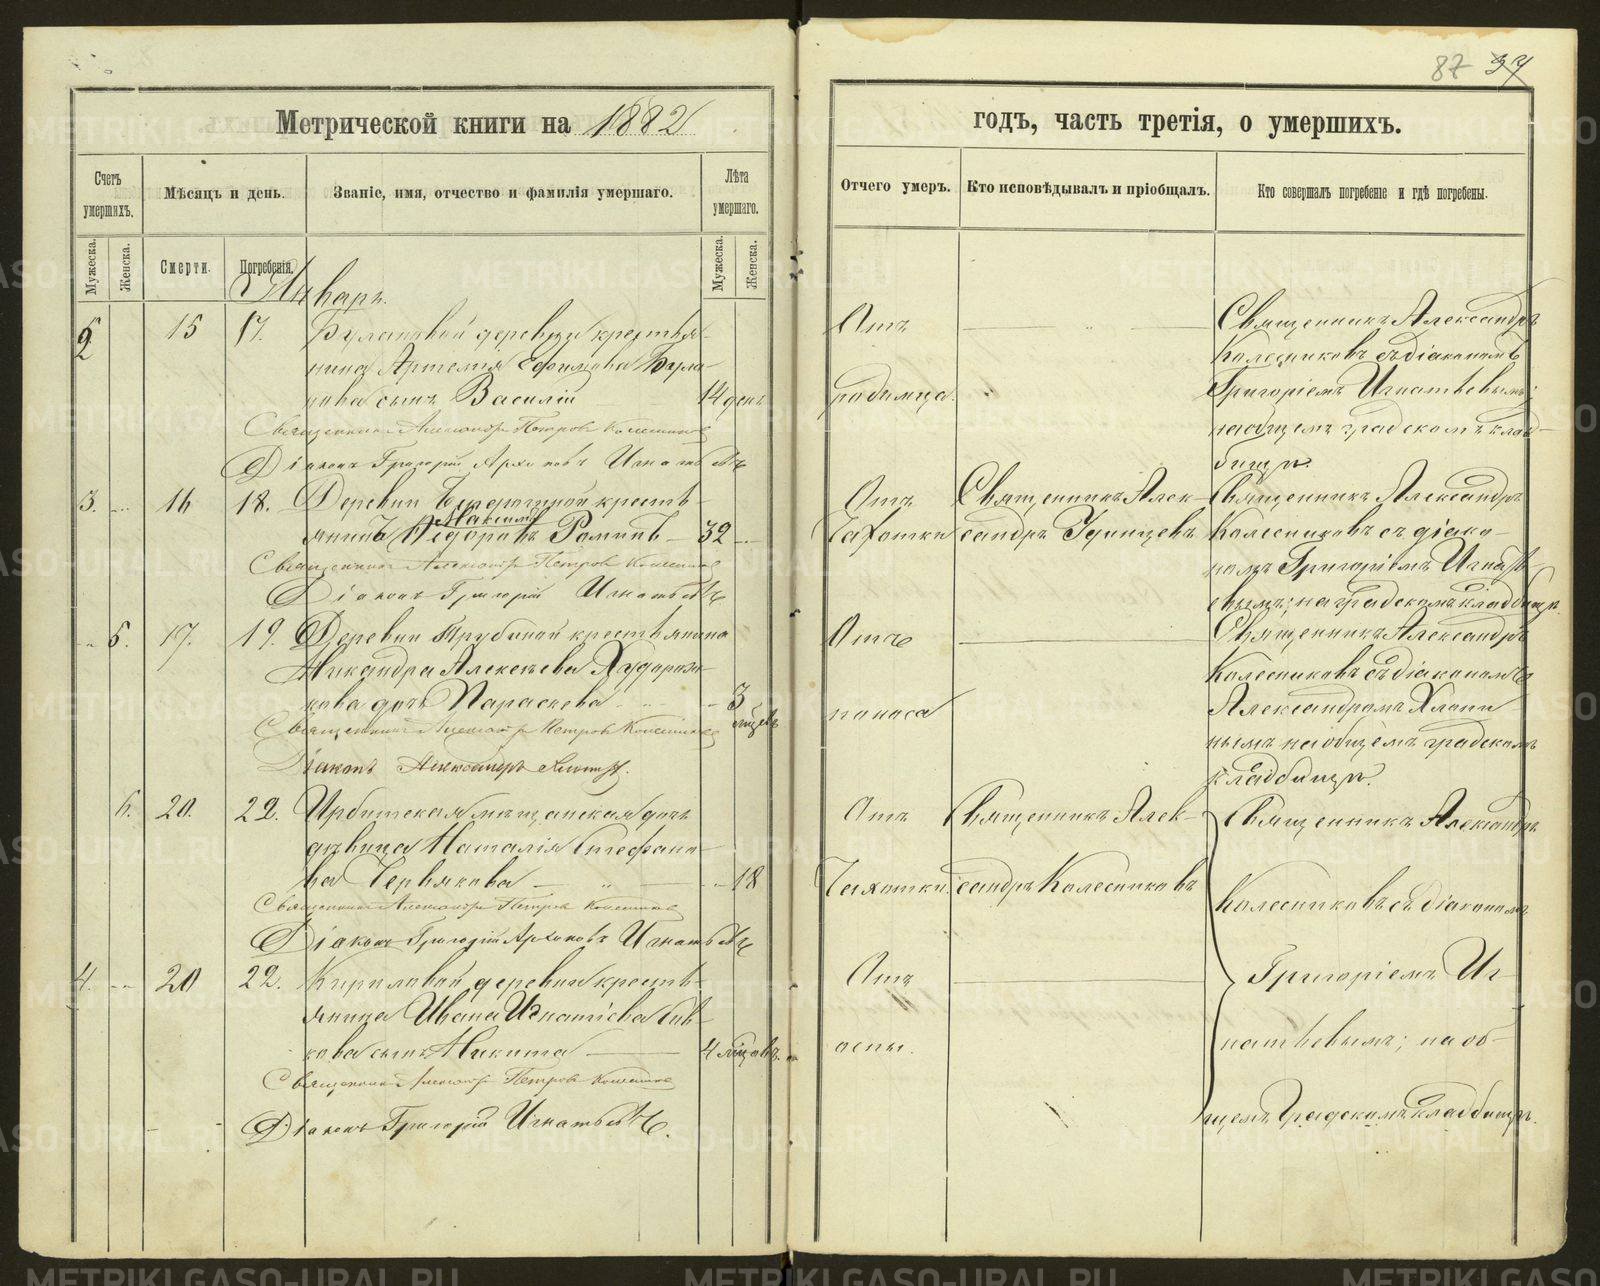 87 34
Метрической книги на 1882
годъ, часть третія, о умершихъ.
Счетъ умершихъ.
Мѣсяцъ и день.
Званіе, имя, отчество и фамилія умершаго.
Лѣта умершаго.
Отчего умеръ.
Кто исповѣдывалъ и пріобщалъ.
Кто совершалъ погребеніе и гдѣ погребены.
Мужеска.
Женска.
Смерти.
Погребенія.
Мужеска.
Женска.
Январь.
2 15 17. Булановой деревни крестья-
нина Артемія Ефимова Була-
нова сынъ Василій 14 денъ
Священникъ Александръ Петровъ Колесниковъ
Діаконъ Григорій Архиповъ Игнатьевъ
Отъ
родимца.
Священникъ Александръ
Колесниковъ съ діакономъ
Григоріемъ Игнатьевымъ;
на общемъ градскомъ клад-
бищѣ.
3. 16 18. Деревни крестья-
янинъ Максимъ Ѳедоровъ 32
Священникъ Александръ Петровъ Колесниковъ
Діаконъ Григорій Игнатьевъ
Отъ
Чахотки
Священникъ Алек-
сандръ Удинцевъ
Священникъ Александръ
Колесниковъ съ діако-
номъ Григоріемъ Игнать-
евымъ; на градскомъ кладбищѣ.
5. 17. 19. Деревни Трубиной крестьянина
Никандра Алексѣева Худорож-
кова дочь Параскева 3
мѣсяцевъ
Священникъ Александръ Петровъ Колесниковъ
Діаконъ Александръ Хлопинъ.
Отъ
поноса
Священникъ Александръ
Колесниковъ съ діакономъ
Александромъ Хлопи-
нымъ на общемъ градскомъ
кладбищѣ.
6. 20. 22. Ирбитская мѣщанская дочь
дѣвица Наталія Стефано-
ва Червякова 18
Священникъ Александръ Петровъ Колесниковъ
Діаконъ Григорій Архиповъ Игнатьевъ
Отъ
Чахотки.
Священникъ Алек-
сандръ Колесниковъ
Священникъ Александръ
Колесниковъ съ діакономъ
4. 20 22. Кириловой деревни кресть-
янина Ивана Игнатіева Сив-
кова сынъ Никита 4 мѣсяцовъ.
Священникъ Александръ Петровъ Колесниковъ
Діаконъ Григорій Игнатьевъ.
Отъ
оспы.
Григоріемъ Иг-
натьевымъ; на об-
щемъ Градскомъ кладбищѣ.
METRIKI.GASO-URAL.RU